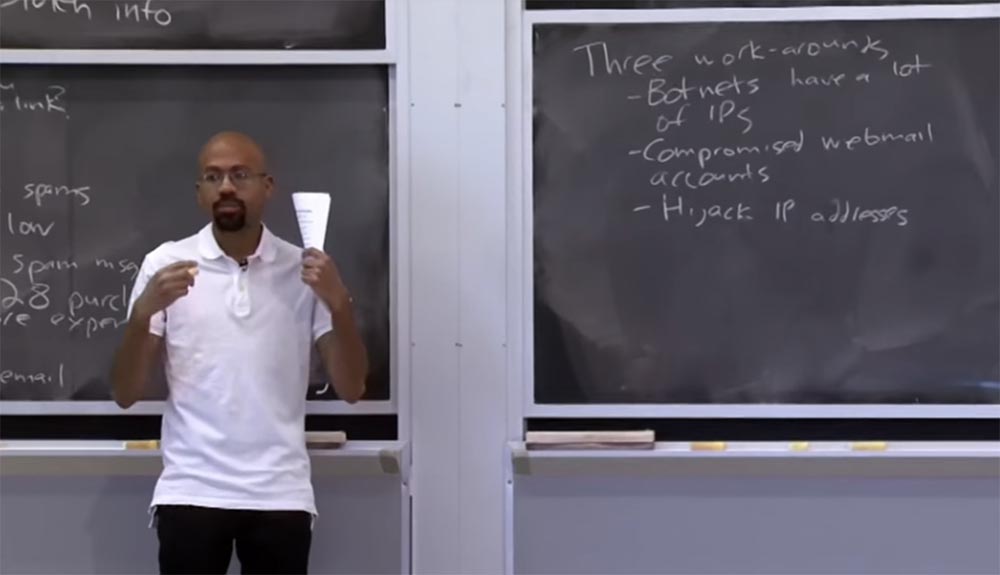 info
spams
low
spam msg
28 purch
email
Three work-arounds
- Botnets have a lot
of IPs
- Compromised webmail
accounts
- Hijack IP addresses